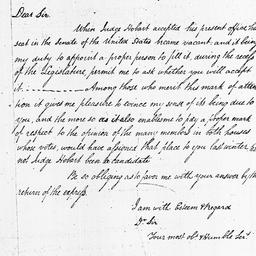 Dear Sir
When Judge Hobart accepted his present office, his
seat in the Senate of the United States became vacant, and it being
my duty to appoint a proper person to fill it, during the recess
of the Legislature permit me to ask whether you will accept
it. Among those who merit this mark of atten
tion it gives me pleasure to evince my sense of its being due to
you, and the more so as it also enables me to pay a proper mark
of respect to the opinion of the many members in both houses
whose votes, would have assigned that place to you last winter, had
not Judge Hobart been a candidate
Be so obliging as to favor me with your answer by the
return of the express.
I am with Esteem & Regard
Dr Sir
Your most obt & Humble Servt